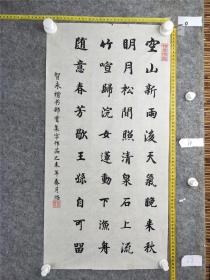 空山新雨後天氣晚来秋
明月松間照清泉石上流
竹喧歸浣女蓮動下漁舟
隨意春芳歇王孫自可留
智永楷书部首集字作品乙未年春月